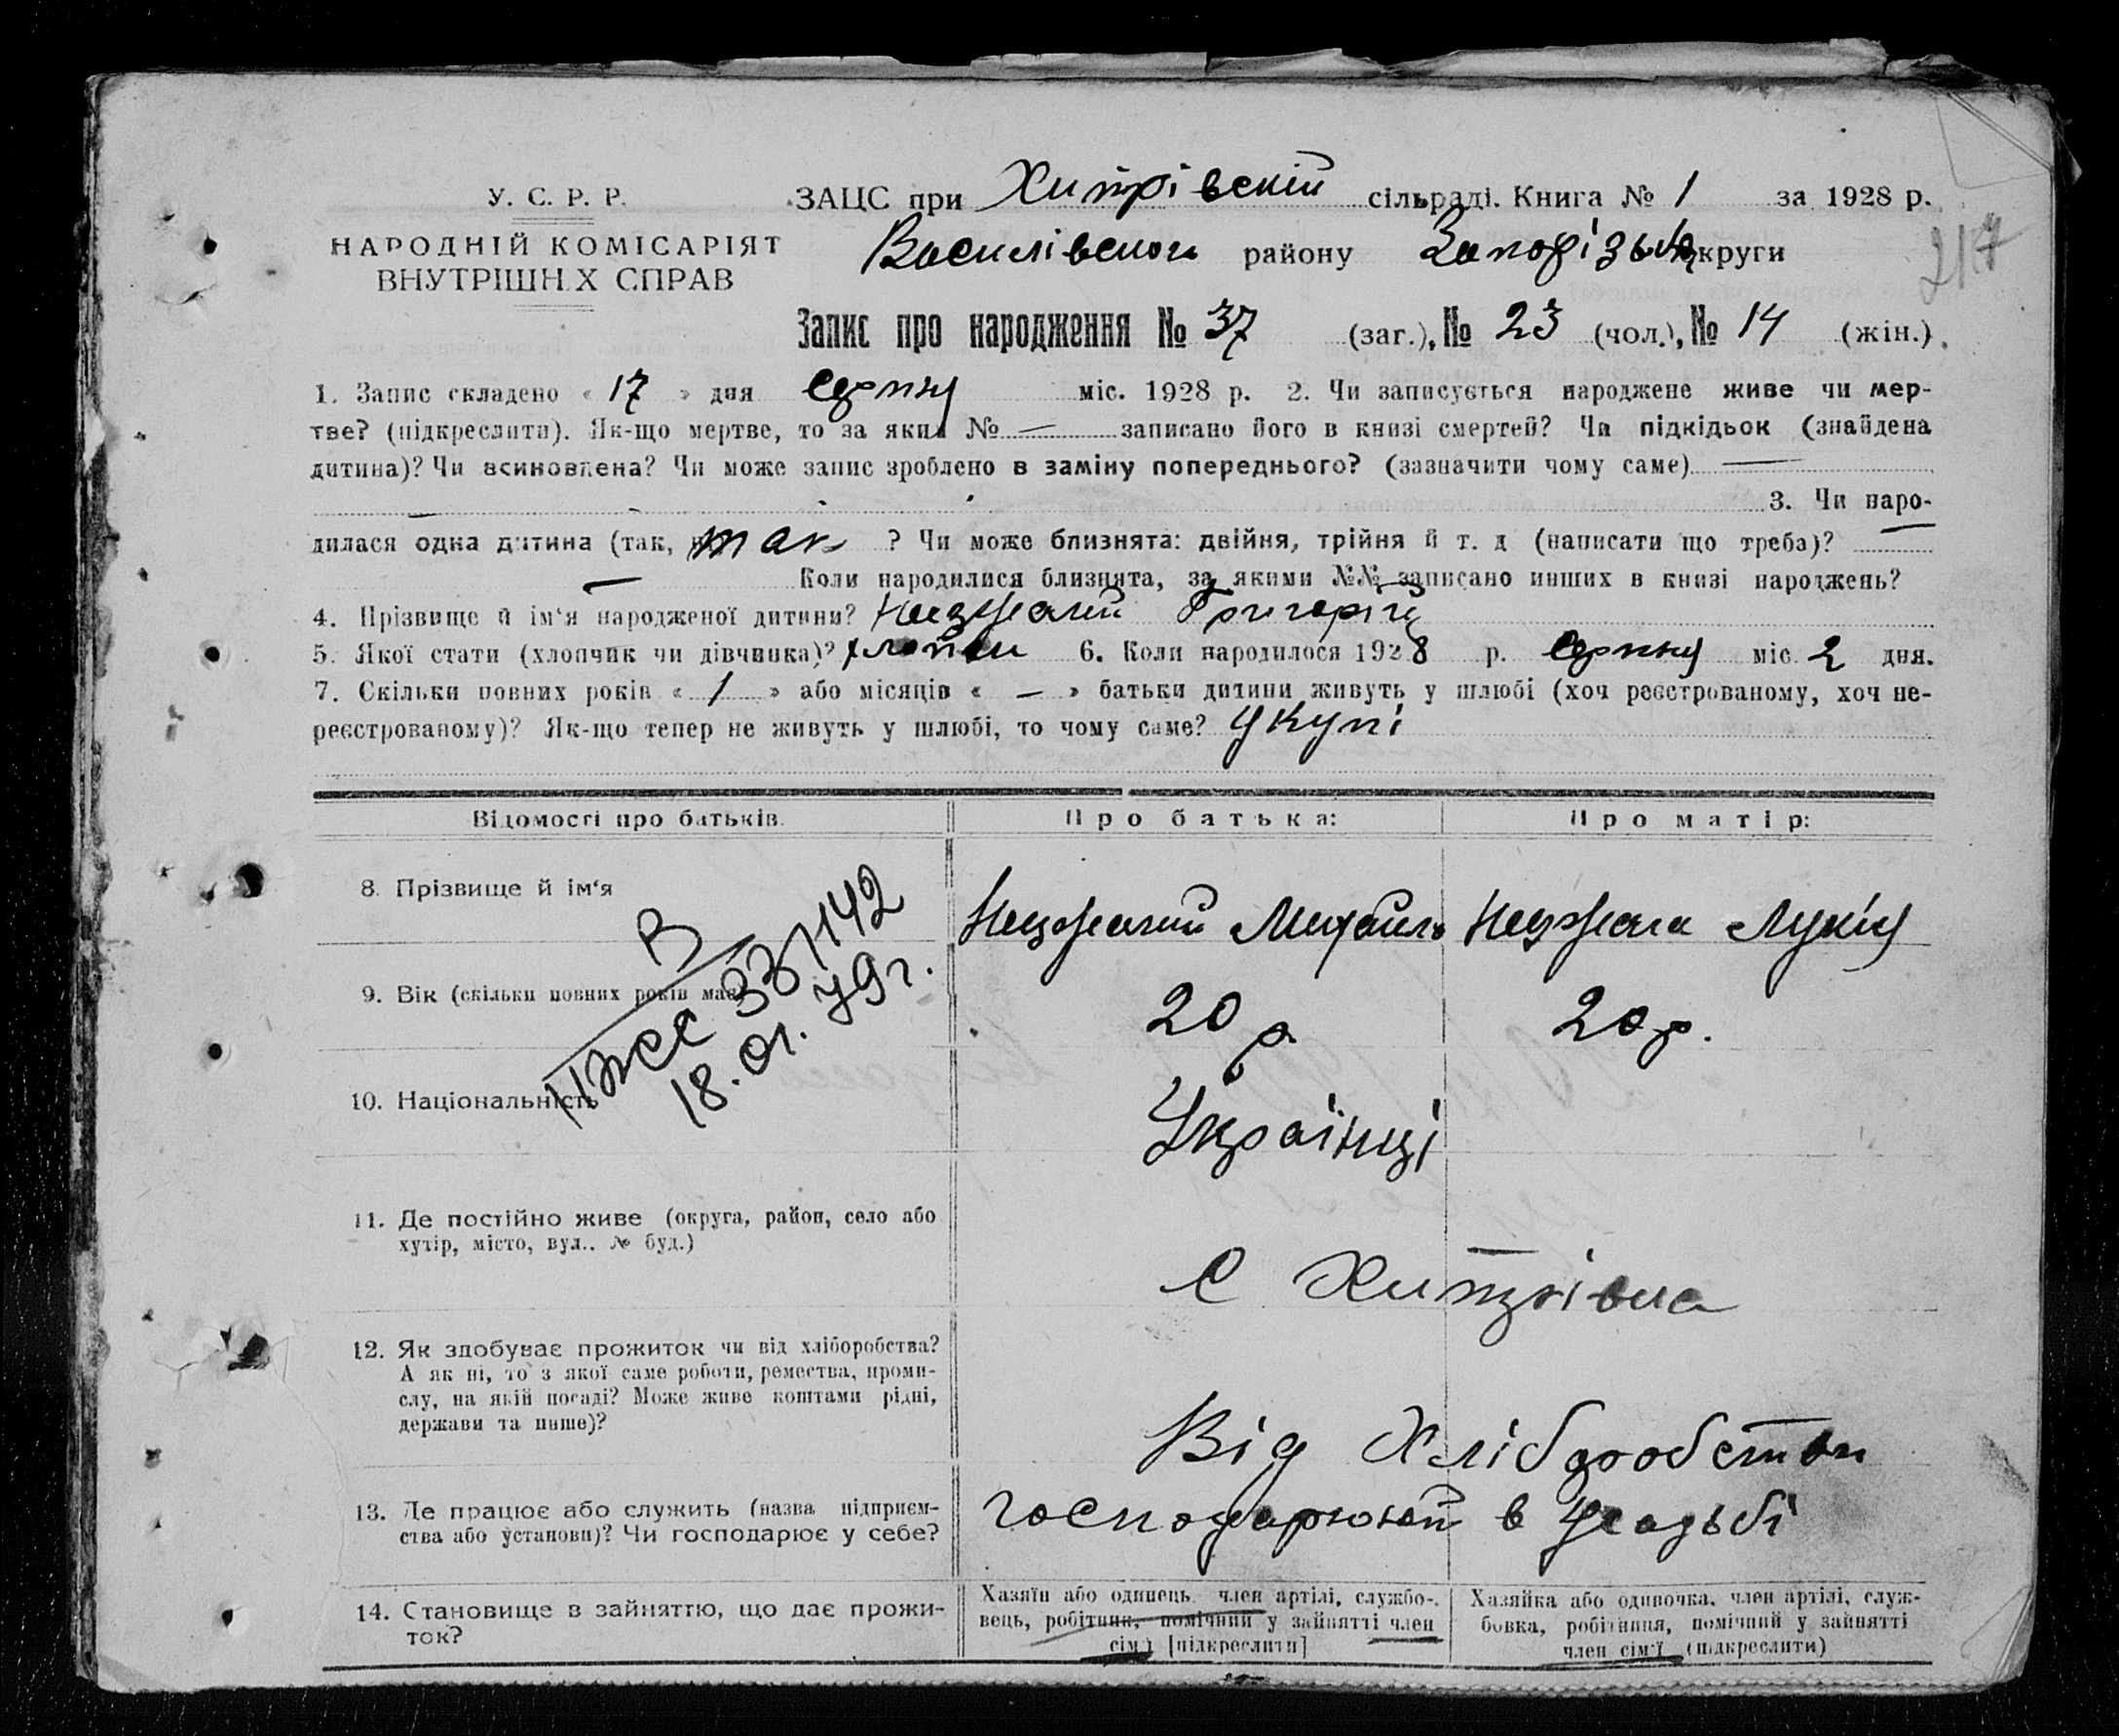 У. С. Р. Р.
НАРОДНІЙ КОМІСАРІЯТ
ВНУТРІШН.Х СПРАВ
ЗАЦС при Хитрівскій сільраді. Книга № 1 за 1928 р.
Василівского району Запорізько округи
217
Запис про народження № 37 (заг.), № 23 (чол.), № 14 (жін.)
1. Запис складено « 17 » дня серпня міс. 1928 р. 2. Чи записується народжене живе чи мер-
тве? (підкреслити). Як-що мертве, то за яким № — записано його в книзі смертей? Чи підкідьок (знайдена
дитина)? Чи всиновлена? Чи може запис зроблено в заміну попереднього? (зазначити чому саме) —
3. Чи наро-
дилася одна дитина (так, так ? Чи може близнята: двійня, трійня й т. д (написати що треба)? —
— Коли народилися близнята, за якими №№ записано инших в книзі народжень?
4. Прізвище й ім'я народженої дитини? Григорій
5. Якої стати (хлопчик чи дівчинка)? 6. Коли народилося 1928 р. серпня міс. 2 дня.
7. Скільки повних років « 1 » або місяців « — » батьки дитини живуть у шлюбі (хоч реєстрованому, хоч не-
реєстрованому)? Як-що тепер не живуть у шлюбі, то чому саме? Укупі
Відомості про батьків. Про батька: Про матір:
8. Прізвище й ім'я Михайло Лукія
9. Вік (скільки повних років має) 20 р 20 р.
В
ІІЖС 331142
18.01.79г.
10. Національність Українці
11. Де постійно живе (округа, район, село або
хутір, місто, вул.. № буд.)
С Хитрівка
12. Як здобуває прожиток чи від хліборобства?
А як ні, то з якої саме роботи, ремества, проми-
слу, на якій посаді? Може живе коштами рідні,
держави та инше)?
Від Хліборобства
13. Де працює або служить (назва підприєм-
ства або установи)? Чи господарює у себе?
господарюють в усадьбі
14. Становище в зайняттю, що дає прожи-
ток?
Хазяїн або одинець, член артілі, службо-
вець, робітник, помічний у зайнятті член
сім'ї [підкреслити]
Хазяйка або одиночка, член артілі, служ-
бовка, робітниця, помічний у зайнятті
член сім'ї (підкреслити)